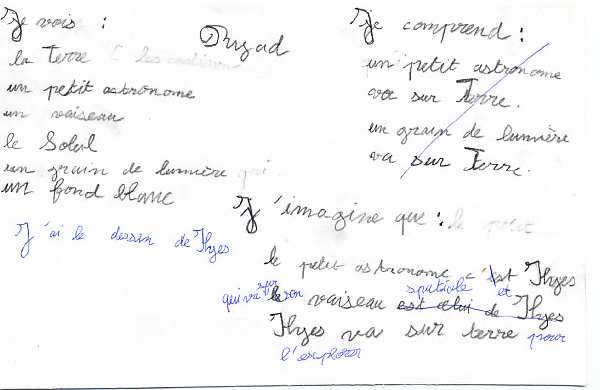 Je vois :
la Terre
un petit astronome
un vaiseau
le Soleil
un grain de lumière
un fond blanc
J'ai le dessin de Ilyes
Je comprend :
un petit astronome
va sur Terre.
un grain de lumière
va sur Terre.
J'imagine que : le petit
le petit astronome c'est Ilyes
qui va sur son spatiale et
le vaiseau est celui de Ilyes
Ilyes va sur terre pour
l'explorer